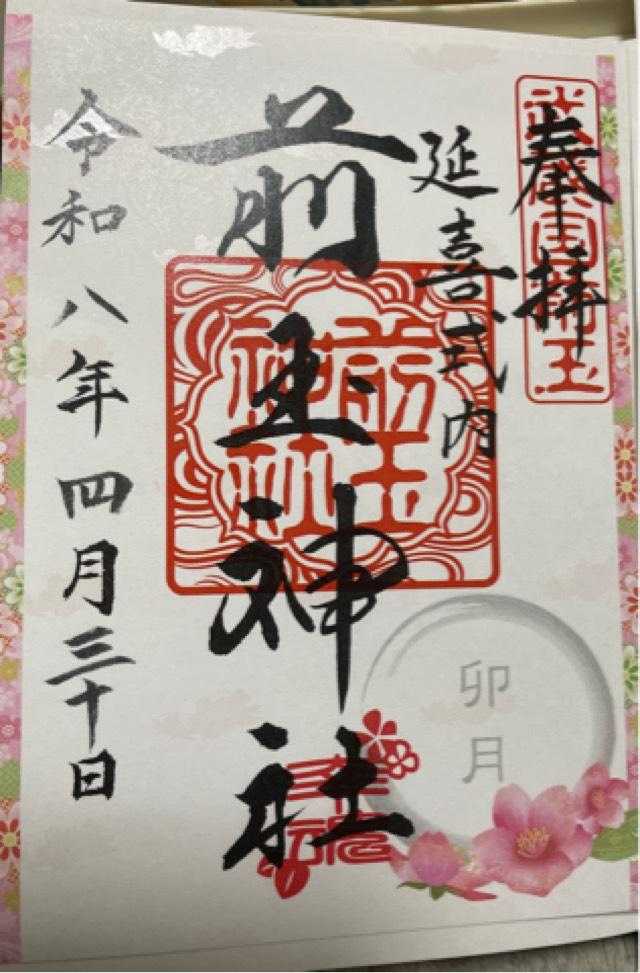 奉拝
武蔵国埼玉
延喜式内
前玉神社
前玉
神社
卯月
令和八年四月三十日